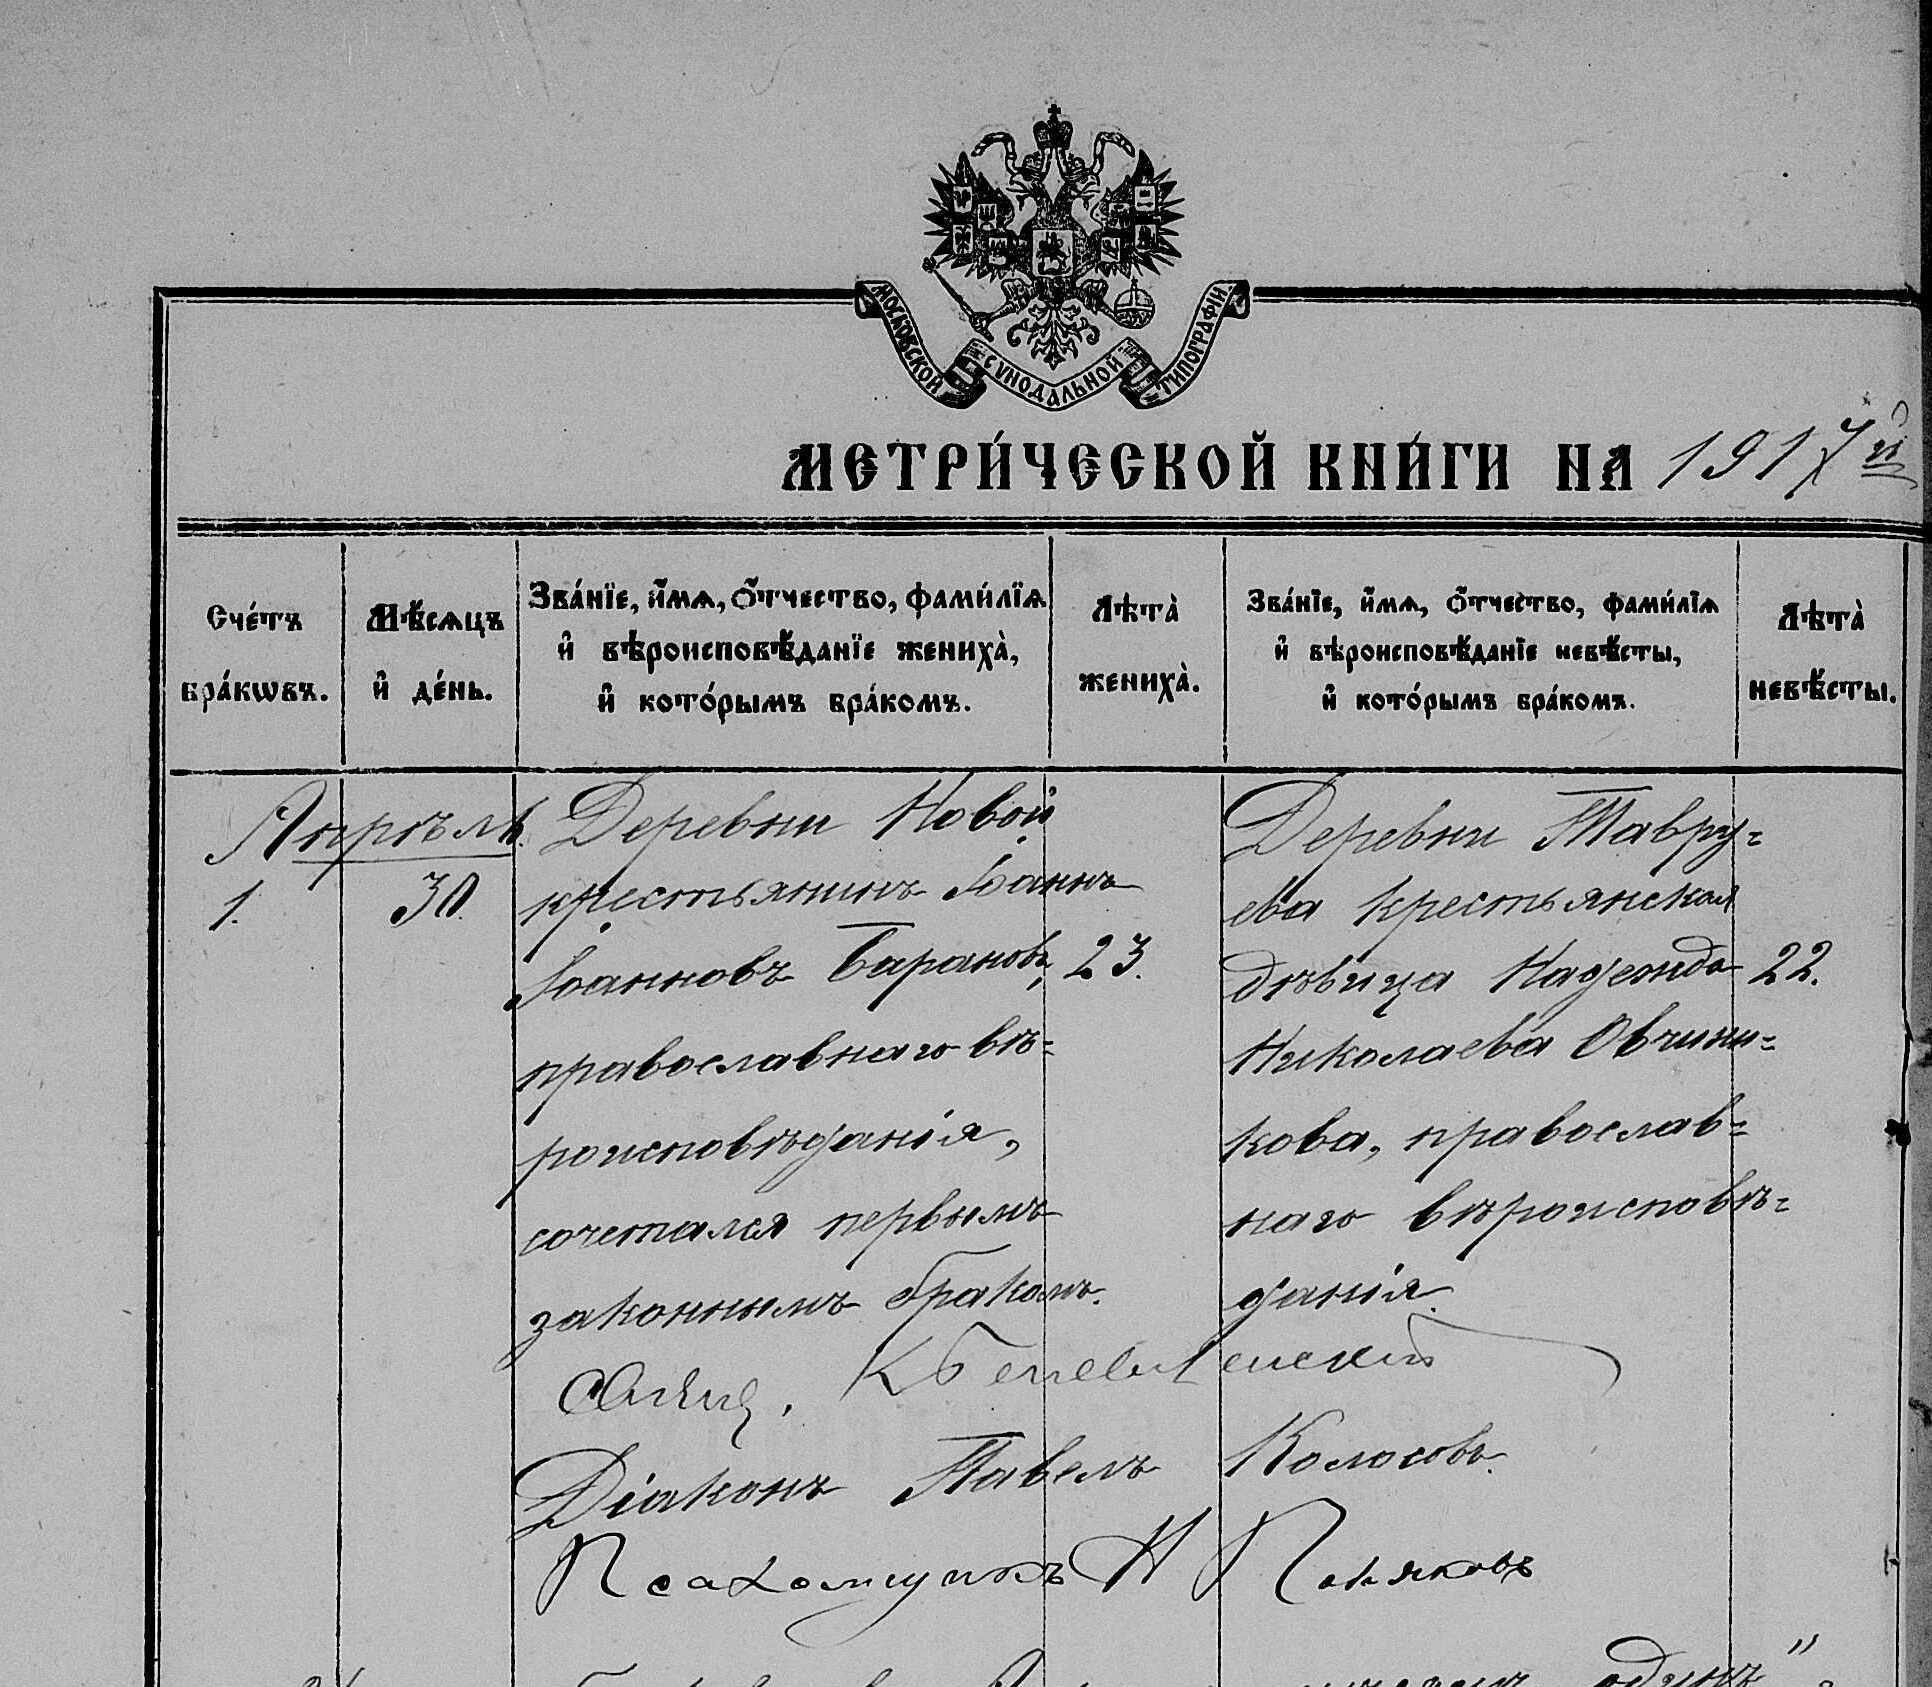 МОСКОВСКОЙ СѴНОДАЛЬНОЙ ТИПОГРАФІИ
МЕТРИ́ЧЕСКОЙ КНИ́ГИ НА 1917й
Сче́тъ бра́кѡвъ.
Мѣ́сѧцъ и҆ де́нь.
Зва́нїе, и҆́мѧ, ѻ҆́тчество, фами́лїѧ
и҆ вѣроисповѣ́данїе жениха̀,
и҆ кото́рымъ бра́комъ.
Лѣта̀ жениха̀.
Зва́нїе, и҆́мѧ, ѻ҆́тчество, фами́лїѧ
и҆ вѣроисповѣ́данїе невѣ́сты,
и҆ кото́рымъ бра́комъ.
Лѣта̀ невѣ́сты.
Апрѣль.
1.
30.
Деревни Новой
крестьянинъ Іоаннъ
Іоанновъ Барановъ,
православнаго вѣ=
роисповѣданія,
сочетался первымъ
законнымъ бракомъ.
23.
Деревни Тавру=
ева крестьянская
дѣвица Надежда
Николаева Овчини=
кова, православ=
наго вѣроисповѣ=
данія.
22.
Діаконъ Павелъ Колосовъ.
Псаломщикъ Н Поляковъ
одинъ"